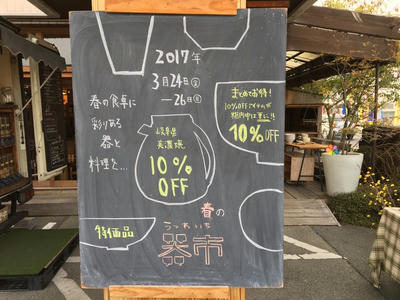 2017年
3月24日(金)
—26日(日)
春の食卓に
彩りある
器と
料理を…
岐阜県
美濃焼
10%
OFF
まとめてお得!
10%OFF
10%OFF
特価品
春の
うつわいち
器市